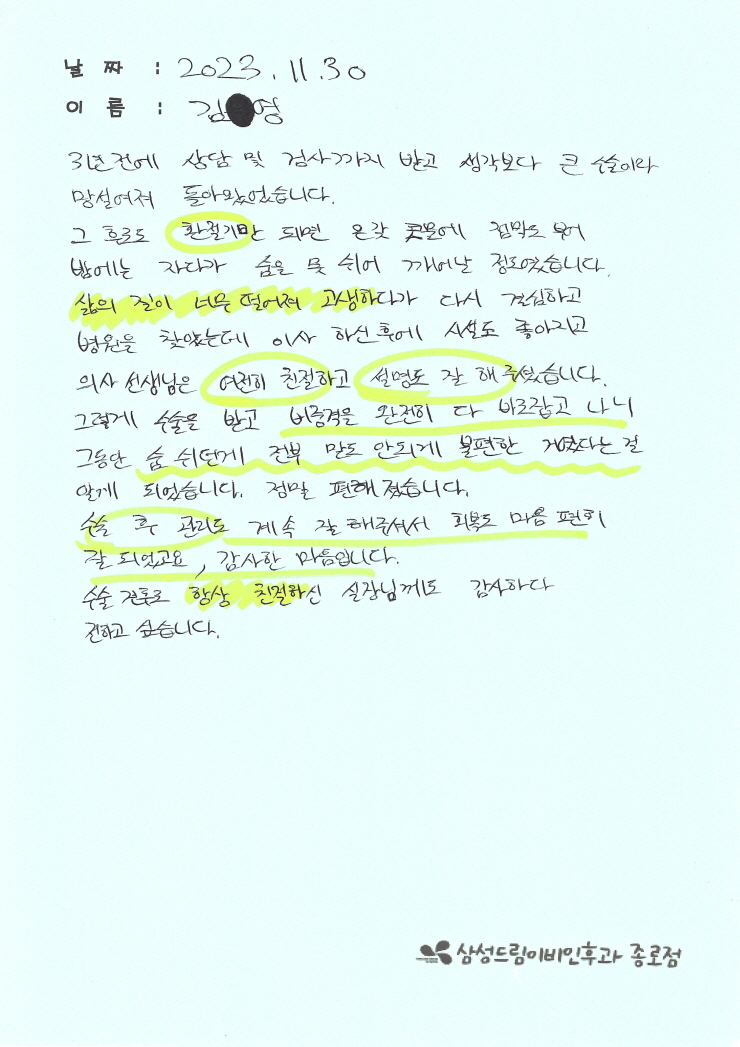 날 짜 : 2023. 11. 30
이 름 : 김 영
3년전에 상담 및 검사까지 받고 생각보다 큰 수술이라
망설여져 돌아왔었습니다.
그 후로도 환절기만 되면 온갖 콧물에 점막도 부어
밤에는 자다가 숨을 못 쉬어 깨어날 정도였습니다.
삶의 질이 너무 떨어져 고생하다가 다시 결심하고
병원을 찾았는데 이사 하신후에 시설도 좋아지고
의사 선생님은 여전히 친절하고 설명도 잘 해주셨습니다.
그렇게 수술을 받고 비중격을 완전히 다 바로잡고 나니
그동안 숨 쉬던게 전부 말도 안되게 불편한 거였다는 걸
알게 되었습니다. 정말 편해졌습니다.
수술 후 관리도 계속 잘해주셔서 회복도 마음 편히
잘 되었고요, 감사한 마음입니다.
수술 전후로 항상 친절하신 실장님께도 감사하다
전하고 싶습니다.
삼성드림이비인후과 종로점